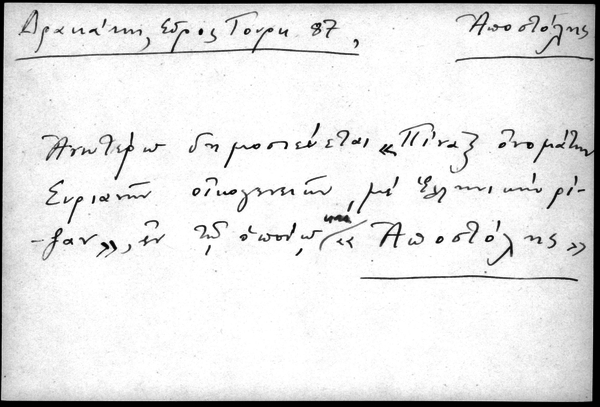 Δρακάκη, Σύρος Τουρκ 87, Ἀποστόλης
Ἀνωτέρω δημοσιεύεται «Πίναξ ὀνομάτων
Συριανῶν οἰκογενειῶν, μέ ἑλληνικήν ρί-
-ζαν», ἐν τῷ ὁποίῳ και «Ἀποστόλης»